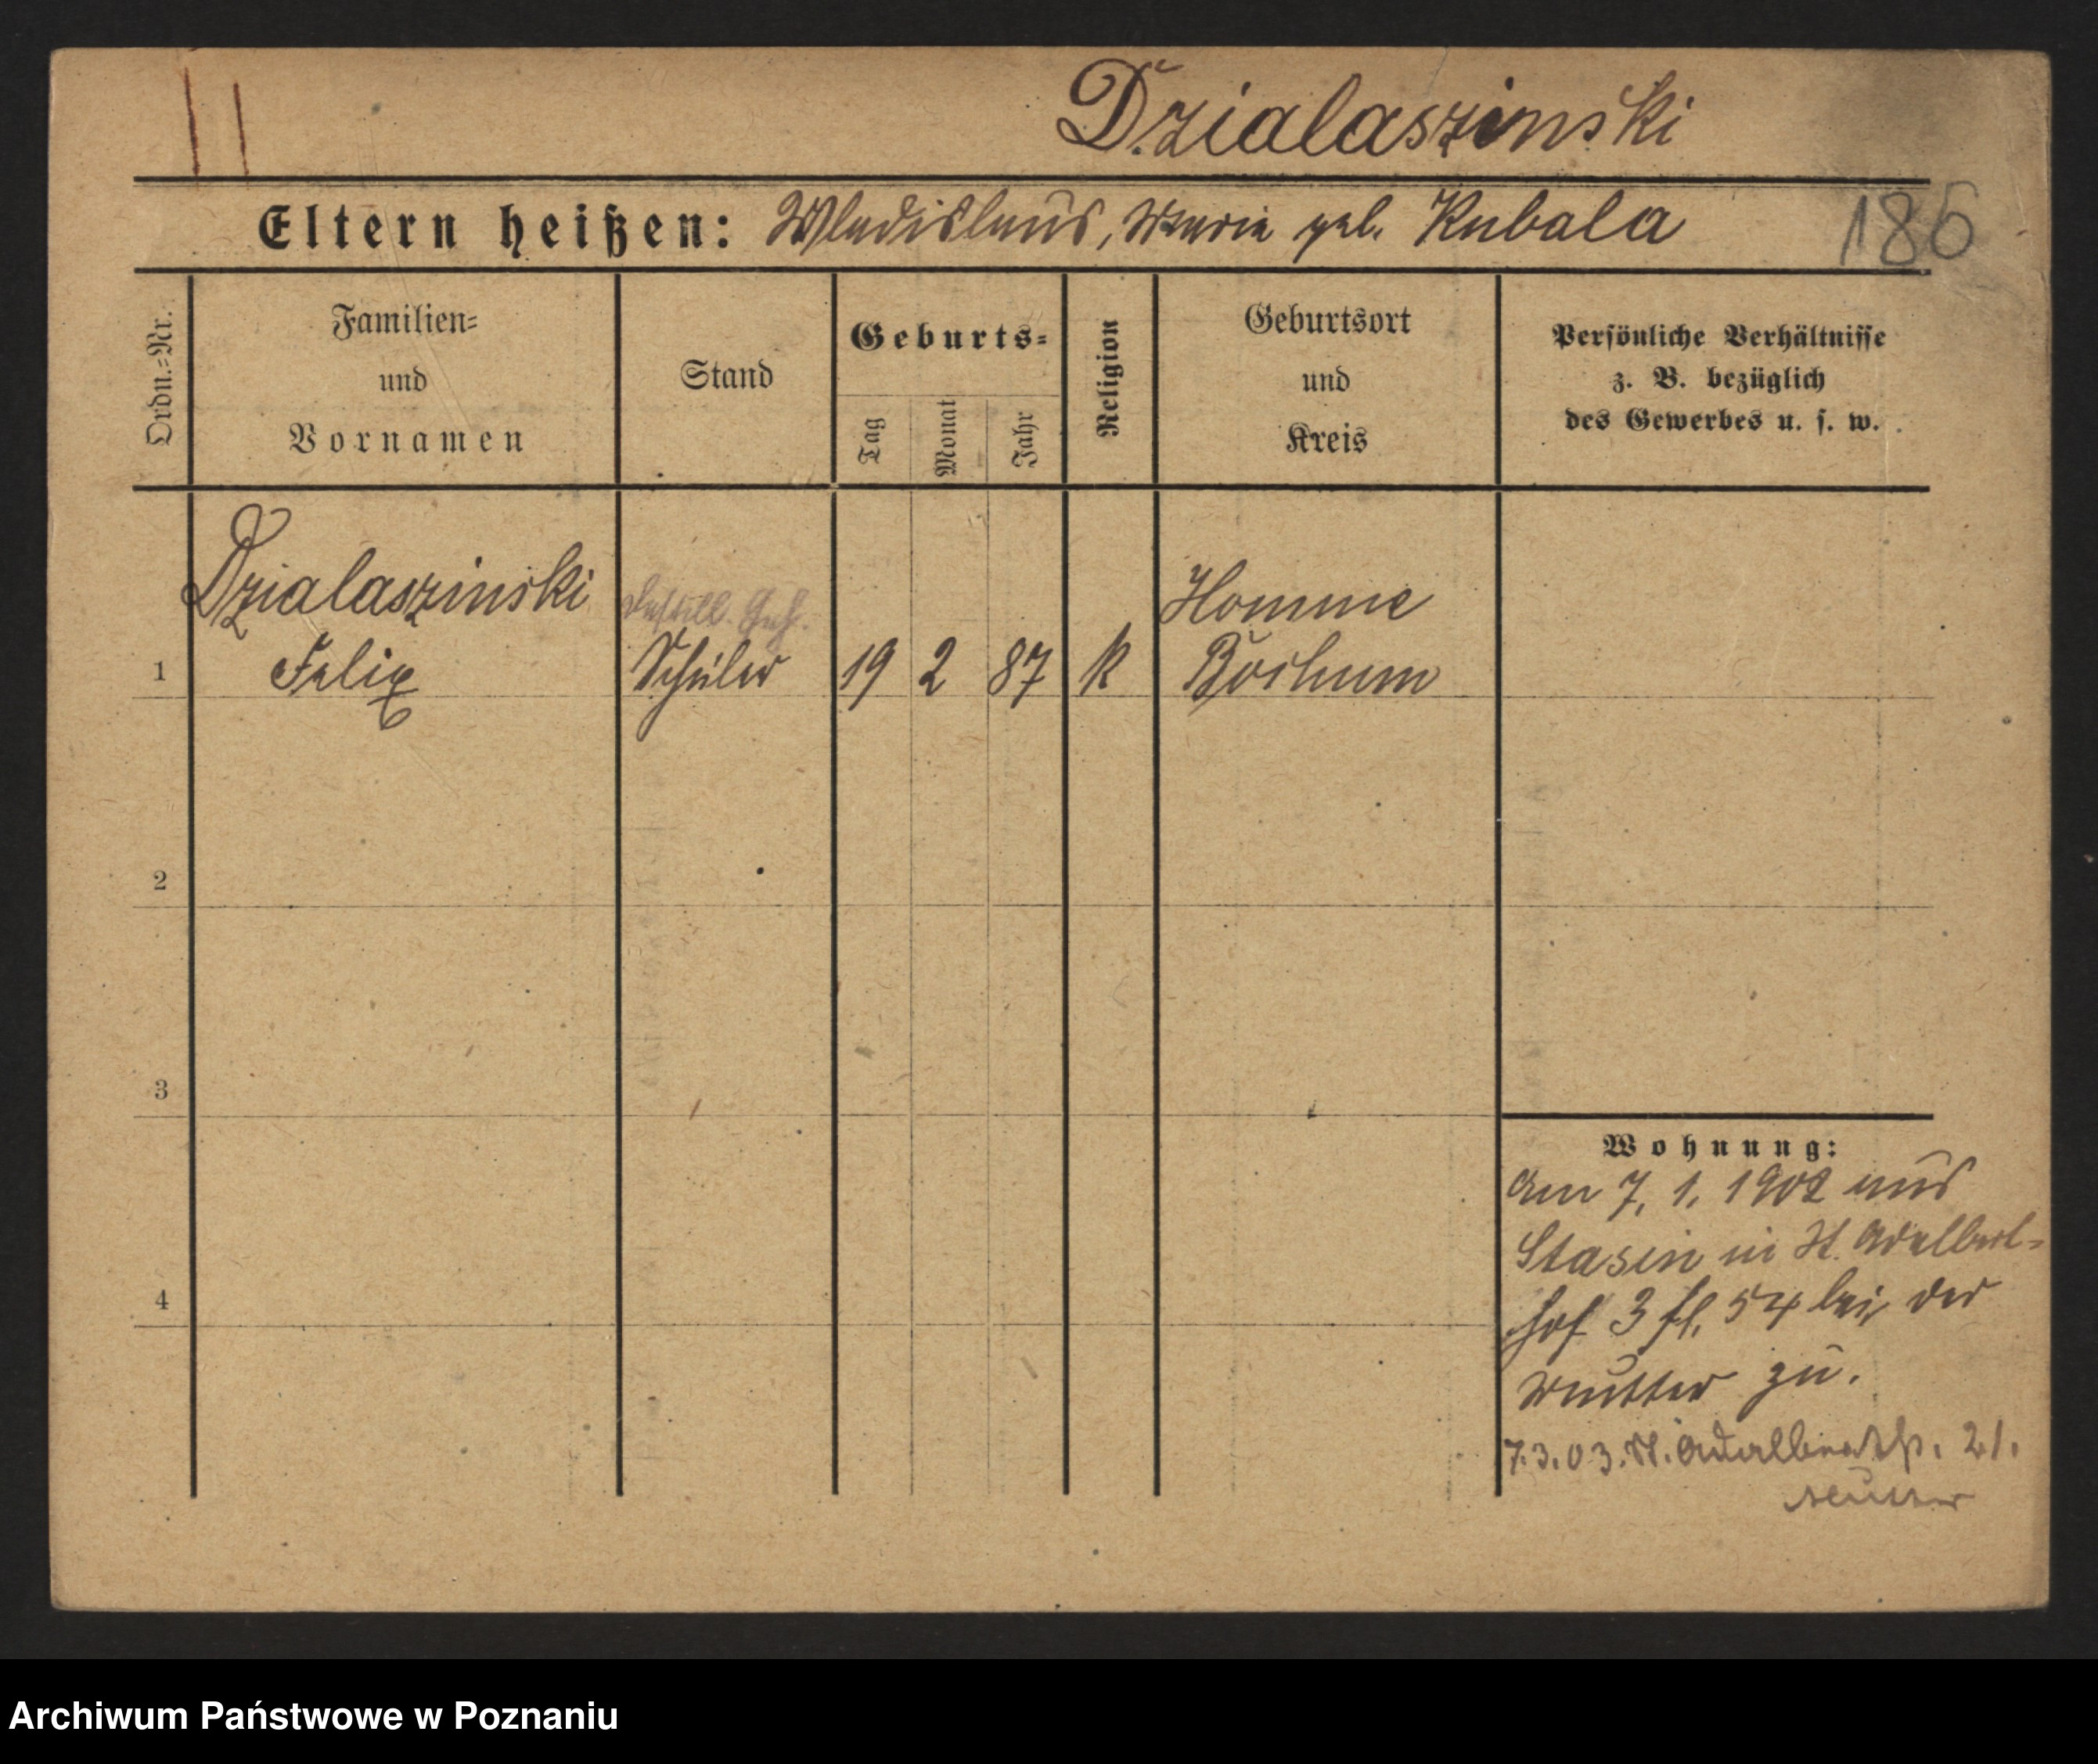 Dzialaszinski
Eltern heißen: Wladislaus, Maria geb. Kubala
186
Ordn.=Nr.
Familien=
und
Vornamen
Stand
Geburts=
Tag
Monat
Jahr
Religion
Geburtsort
und
Kreis
Persönliche Verhältnisse
z. B. bezüglich
des Gewerbes u. s. w.
Dzialaszinski
Destill. Geh.
Homme
1 Felix Schüler 19 2 87 k Bochum
2
3
4
Wohnung:
Am 7. 1. 1902 aus
Stasin in St. Adalbert=
hof 3 fl. 54 bei der
Mutter zu.
7.3.03. St. Adalbertstr. 21.
Mutter
Archiwum Państwowe w Poznaniu